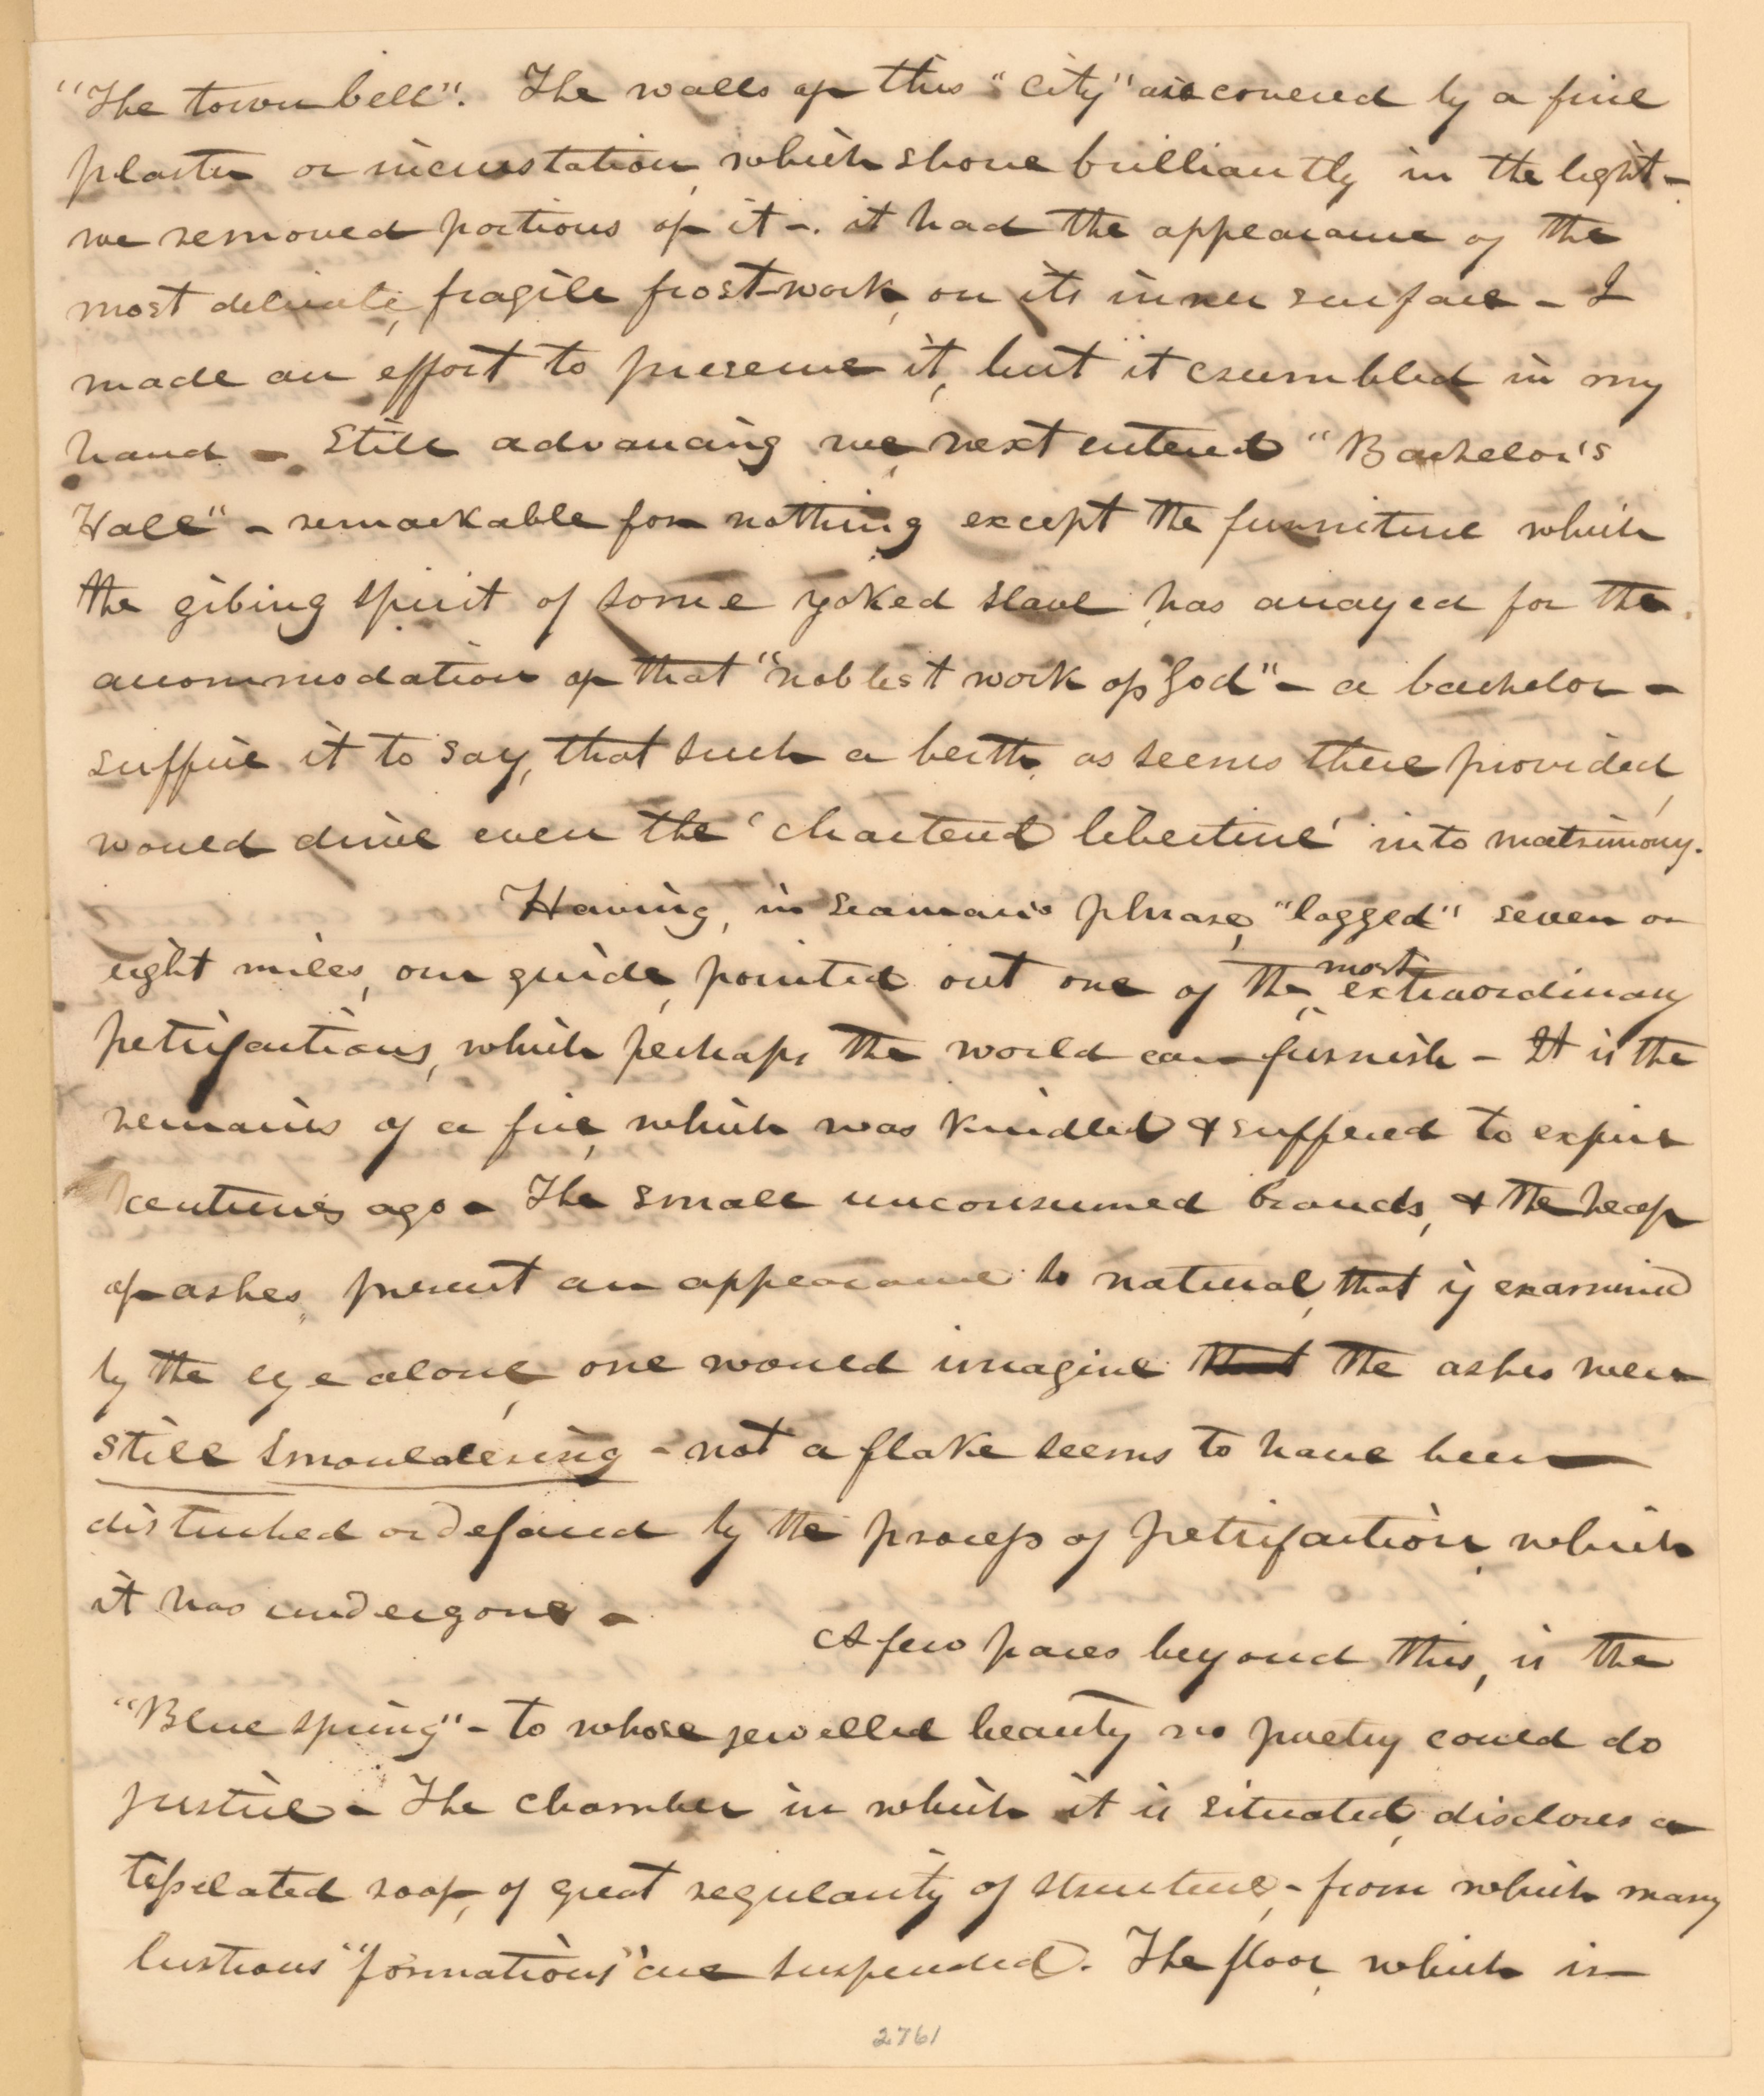 "The town bell". The walls of this "City" are covered by a fine
plaster or incrustation, which shone brilliantly in the light-
we removed portions of it -. it had the appearance of the
most delicate, fragile frost-work, on its inner surface - I
made an effort to preserve it, but it crumbled in my
hand - Still advancing we, next entered "Bachelor's
Hall" - remarkable for nothing except the furniture which
the gibing spirit of some yoked slave has arrayed for the
accommodation of that "noblest work of God" - a bachelor -
suffice it to say, that such a berth, as seems there provided,
would drive even the 'chartered libertine' into matrimony.
Having, in Seaman's phrase, "logged" seven or
eight miles, our guide, pointed out one of the most extraordinary
petrifactions, which perhaps the world can furnish - It is the
remains of a fire, which was kindled & suffered to expire
centuries ago - The small unconsumed brands, & the heap
of ashes, present an appearance so natural, that if examined
by the eye alone, one would imagine that the ashes were
still smouldering - not a flake seems to have been
disturbed or defaced by the process of petrifaction, which
it has undergone -
A few paces beyond this, is the
"Blue spring" - to whose jewelled beauty no poetry could do
justice - The chamber in which it is situated, discloses a
tesselated roof, of great regularity of structure, - from which many
lustrous "formations" are suspended. The floor, which is
2761